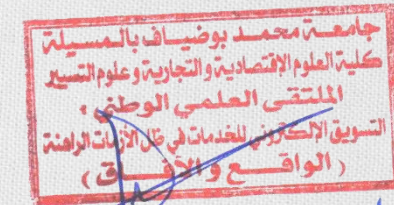 جامعة محمد بوضياف بالمسيلة
كلية العلوم الإقتصادية والتجارية وعلوم التسيير
الملتقى العلمي الوطني :
التسويق الإلكتروني للخدمات في ظل الأزمات الراهنة
( الواقع والآفاق )